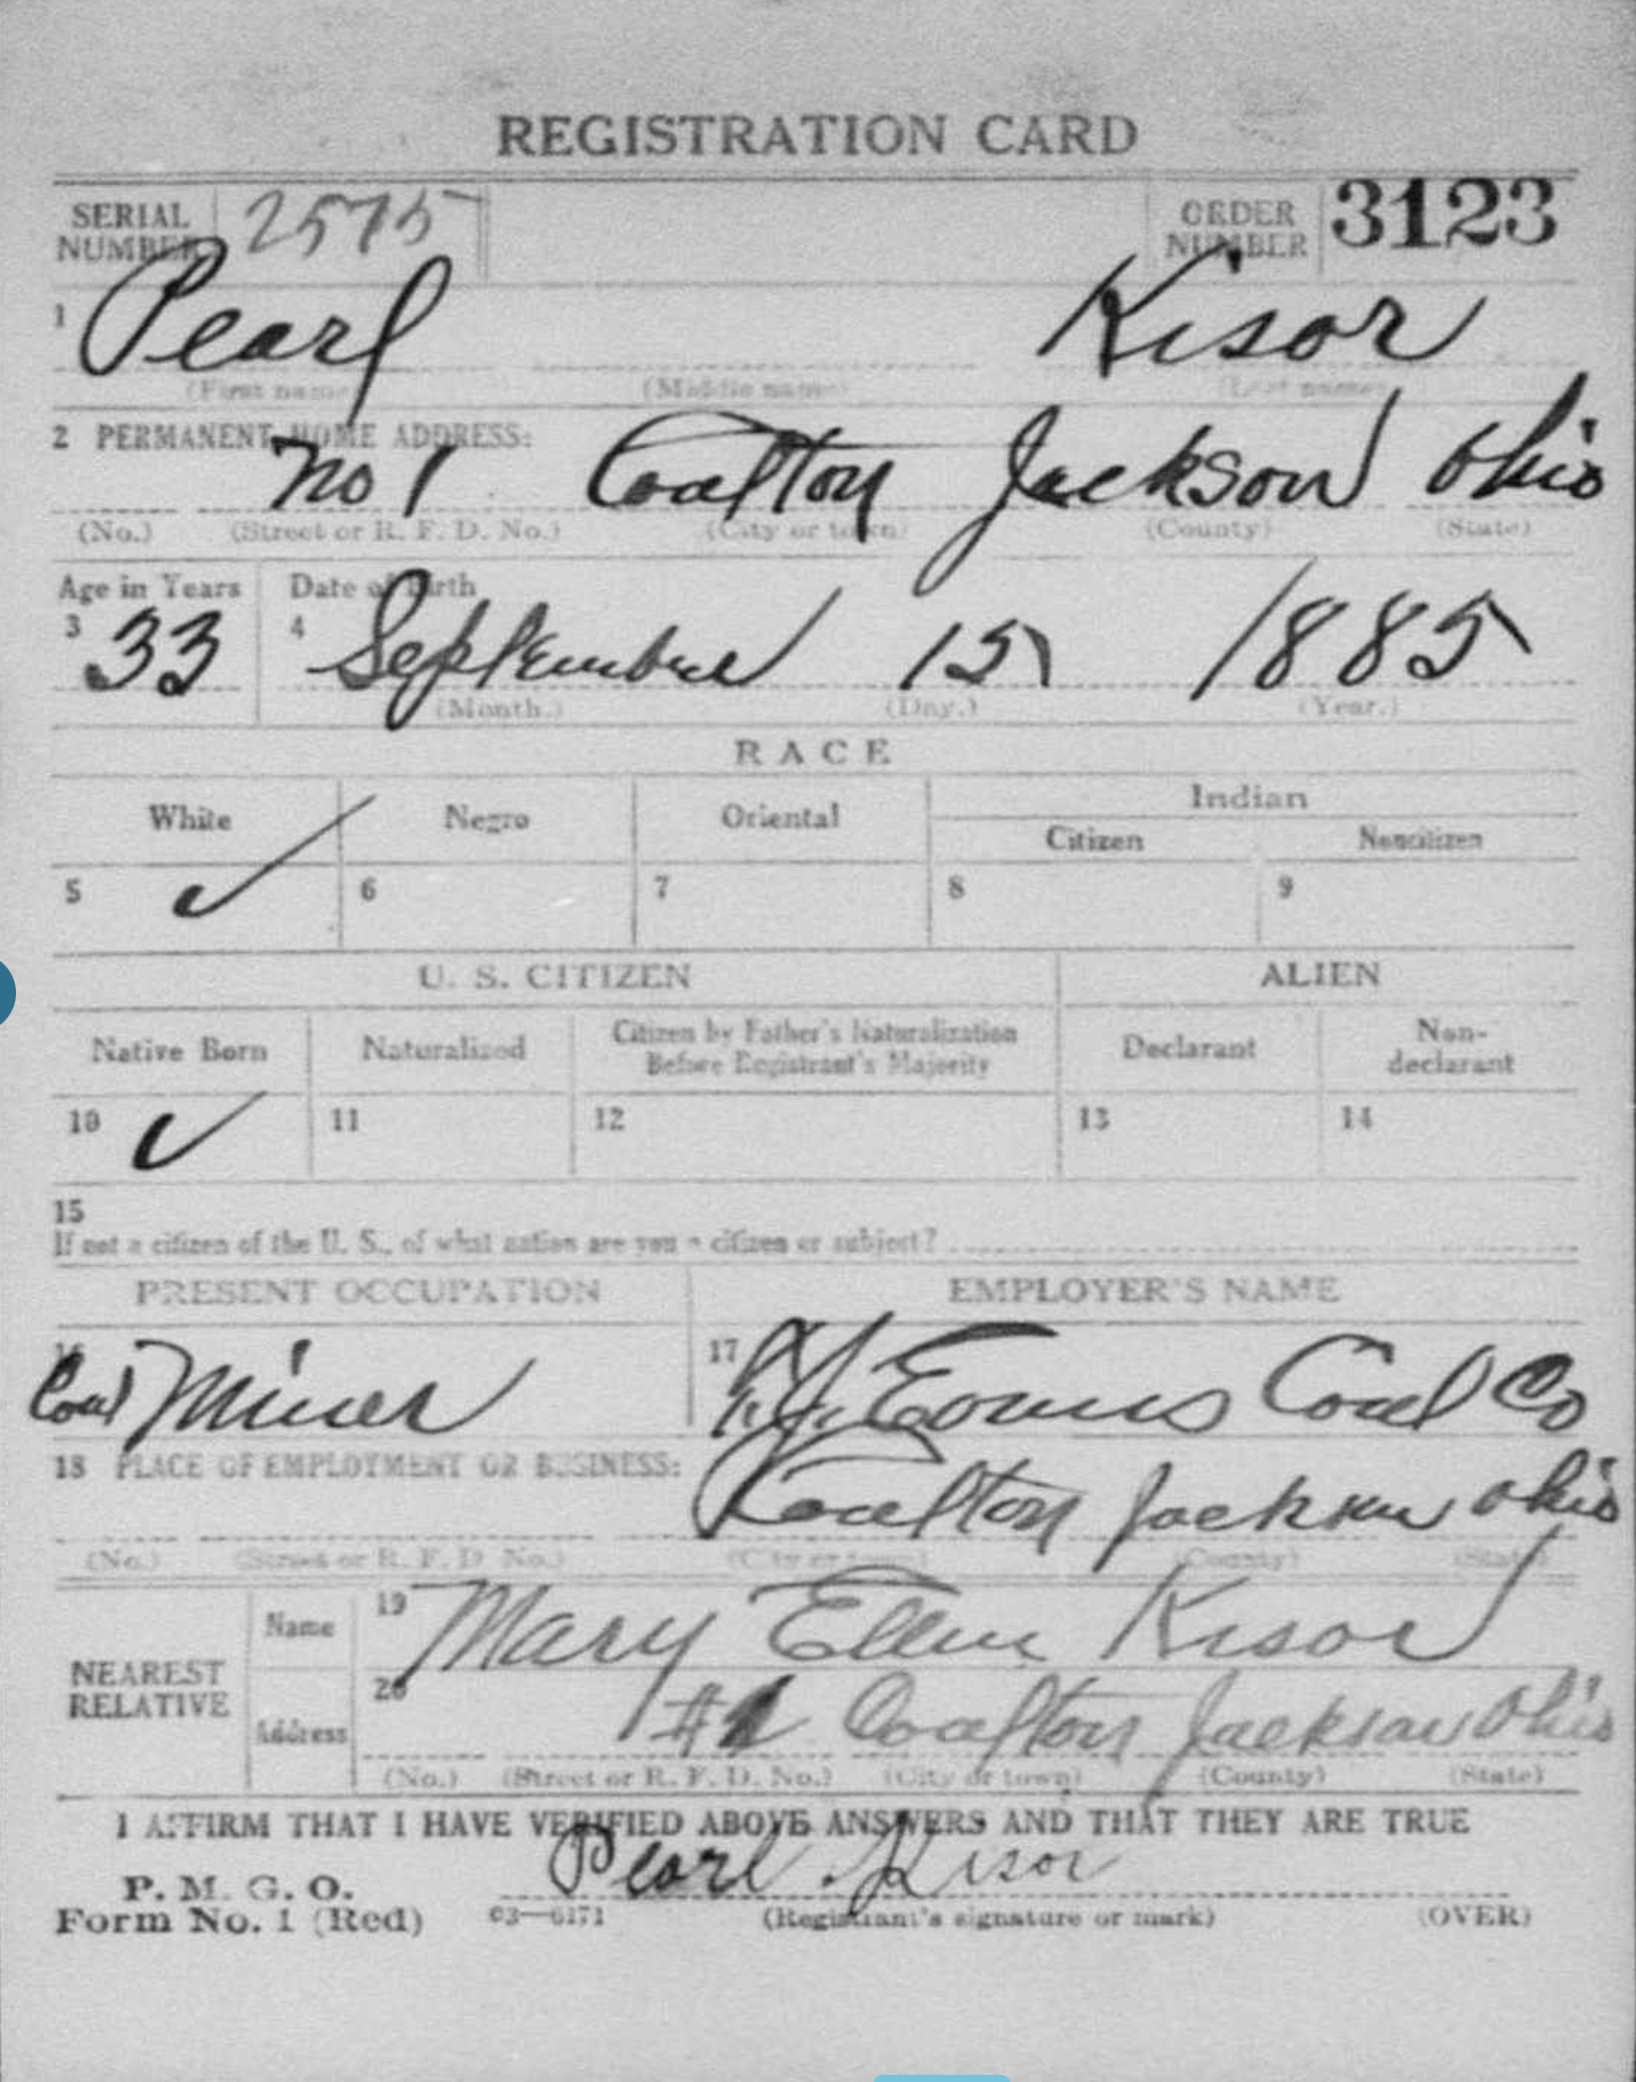 REGISTRATION CARD
SERIAL NUMBER 2575 ORDER NUMBER 3123
1 Pearl Kisor
(First name) (Middle name) (Last name)
2 PERMANENT HOME ADDRESS:
No 1 Coalton Jackson Ohio
(No.) (Street or R. F. D. No.) (City or town) (County) (State)
Age in Years Date of Birth
3 33 4 September 15 1885
(Month.) (Day.) (Year.)
RACE
White Negro Oriental Indian
Citizen Noncitizen
5 ✓ 6 7 8 9
U. S. CITIZEN ALIEN
Native Born Naturalized Citizen by Father's Naturalization Before Registrant's Majority Declarant Non-declarant
10 ✓ 11 12 13 14
15
If not a citizen of the U. S., of what nation are you a citizen or subject?
PRESENT OCCUPATION EMPLOYER'S NAME
Coal Miner 17 Evans Coal Co
18 PLACE OF EMPLOYMENT OR BUSINESS:
Coalton Jackson Ohio
(No.) (Street or R. F. D. No.) (City or town) (County) (State)
NEAREST RELATIVE
Name 19 Mary Ellen Kisor
Address 20 #1 Coalton Jackson Ohio
(No.) (Street or R. F. D. No.) (City or town) (County) (State)
I AFFIRM THAT I HAVE VERIFIED ABOVE ANSWERS AND THAT THEY ARE TRUE
Pearl Kisor
P. M. G. O.
Form No. 1 (Red) 03—6171 (Registrant's signature or mark) (OVER)